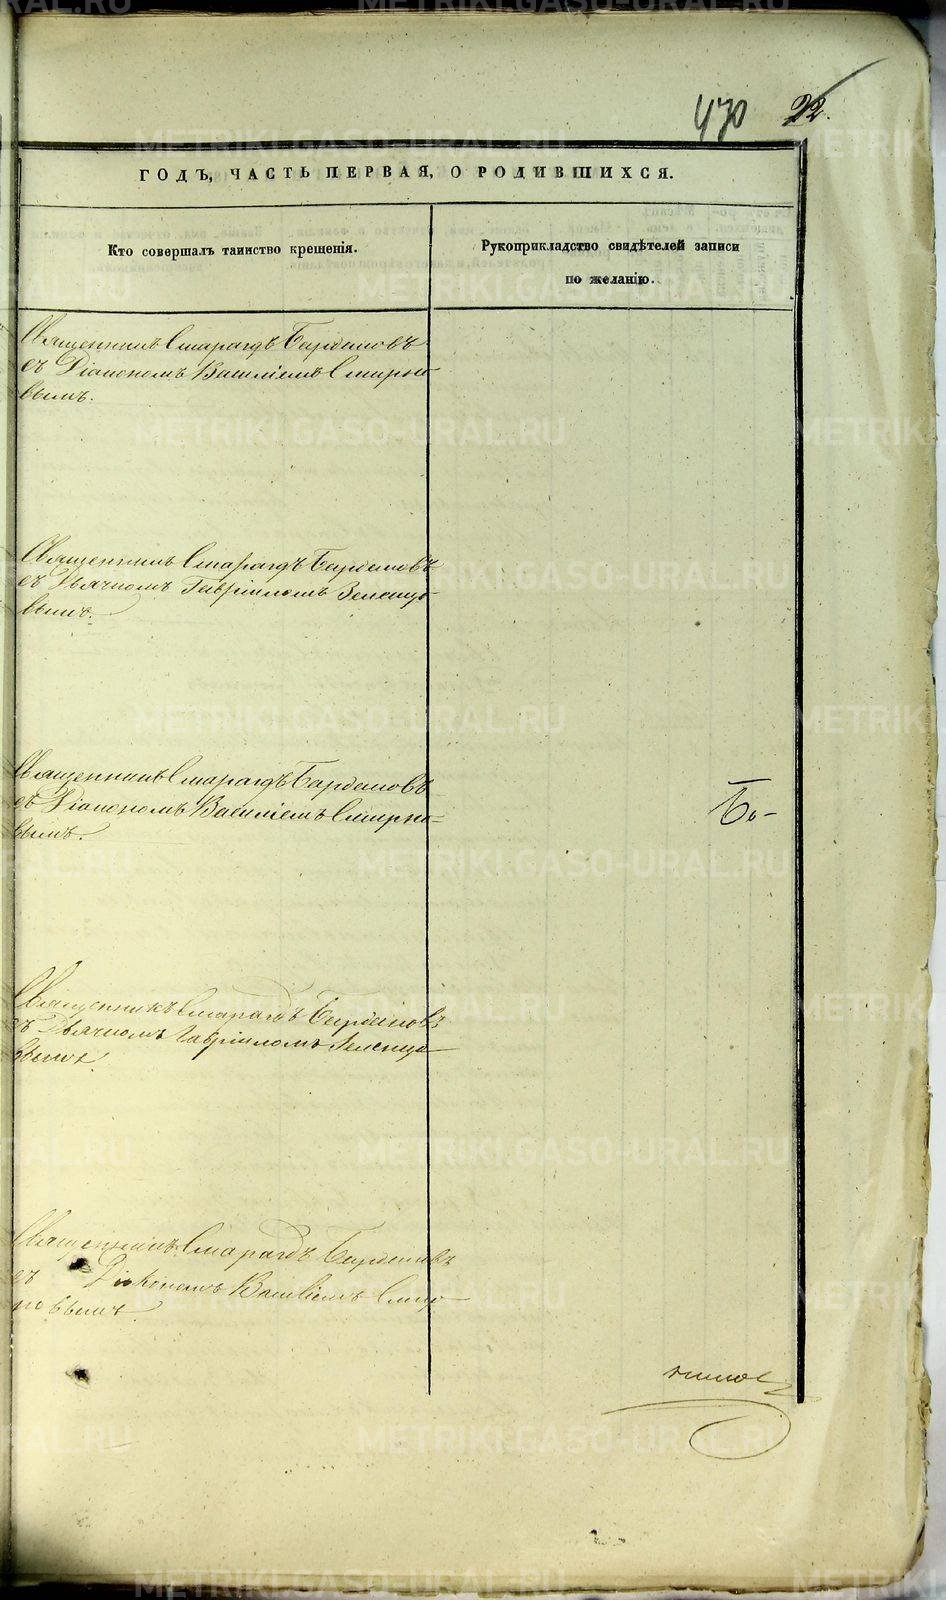 470 22.
ГОДЪ, ЧАСТЬ ПЕРВАЯ, О РОДИВШИХСЯ.
Кто совершалъ таинство крещенія.
Рукоприкладство свидѣтелей записи
по желанію.
Священникъ Смарагдъ
съ Діакономъ Василіемъ Смирно-
вымъ.
Священникъ Смарагдъ
съ Дьячкомъ Гавріиломъ
вымъ.
Священникъ Смарагдъ
съ Діакономъ Василіемъ Смирно-
вымъ.
Бо-
Священникъ Смарагдъ
съ Дьячкомъ Гавріиломъ
вымъ.
Священникъ Смарагдъ
съ Діакономъ Василіемъ Смир-
новымъ.
METRIKI.GASO-URAL.RU